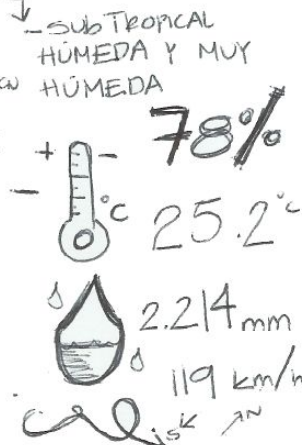 - SubTROPICAL
HÚMEDA Y MUY
HÚMEDA
78%
+ -
-
°C
25.2°C
2.214 mm
119 km/h
S N